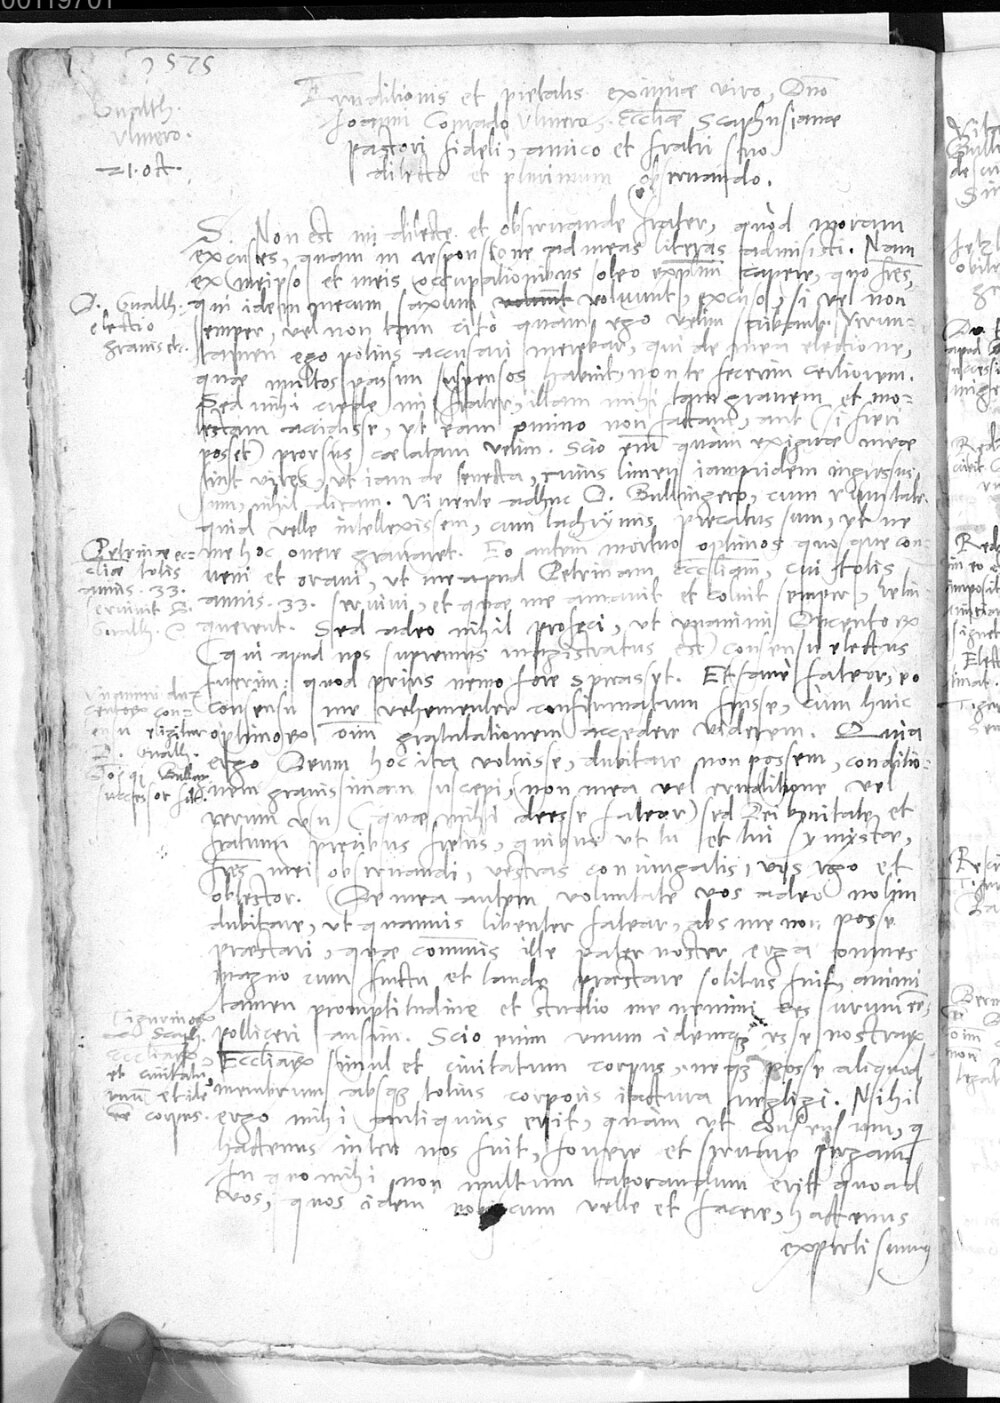 00119701
1575
Gualth.
Ulmero.
21. Oct.
Eruditionis et pietatis eximiae viro, Dno
Ioanni Conrado Ulmero, Eccliae Scaphusianae
pastori fideli, amico et fratri suo
dilecto et plurimum observando.
S. Non est mi dilecte et observande frater, quòd moram
excuses, quam in responsione ad meas literas admisisti. Nam
ex meipso et meis occupationibus soleo exptum capere, quo fres,
qui idem mecum saxum voluunt, excuso, si vel non
semper, vel non tam citò quàm ego velim scribant. Verun-
tamen ego potius accusari merebar, qui de mea electione,
quae multos passim suspensos habuit, non te fecerim certiorem.
Sed mihi crede mi frater, illam mihi tam gravem et mo-
lestam accidisse, ut eam omnino non factam, aut (si fieri
posset) prorsus caelatam velim. Scio em quàm exiguae meae
sint vires, ut iam de senecta, cuius limen iampridem ingressus
sum, nihil dicam. Vivente adhuc D. Bullingero, cum eum tale
quid velle intellexissem, cum lachrymis precatus sum, ut ne
me hoc onere gravaret. Eo autem mortuo optimos quosque con-
veni et oravi, ut me apud Petrinam eccliam, cui totis
annis .33. servivi, et quae me amavit et coluit semper, relin-
querent. Sed adeo nihil profeci, ut unanimi Ducentorum
(qui apud nos supremus magistratus est) consensu electus
fuerim: quod prius nemo fore sperasset. Et sanè fateor, eo
consensu me vehementer confirmatum fuisse, cùm huic
optimorum oim gratulationem accedere viderem. Quia
ergo Deum hoc ita voluisse, dubitare non possem, conditio-
nem gravissimam suscepi, non mea vel eruditione vel
rerum usu (quae mihi deesse fateor) sed Dei bonitate et
fratrum precibus fretus, quibus ut tu et tui symystae,
fres mei observandi, vestras coniungatis, vos rogo et
obtestor. De mea autem voluntate vos adeo nolim
dubitare, ut quamvis libenter fatear, abs me non posse
praestari, quae communis ille pater noster erga omnes
magno cum fructu et laude praestare solitus fuit, animi
tamen promptitudine et studio me nemini cessurum esse,
polliceri ausim. Scio enim unum idemque esse nostrarum
Eccliarum simul et civitatum corpus, neque posse aliquod
membrum absque totius corporis iactura negligi. Nihil
ergo mihi antiquius erit, quàm ut consensum, q
hactenus inter nos fuit, fovere et servare pergam.
In quo mihi non multum laborandum erit quoad
vos, quos idem nobiscum velle et facere, hactenus
experti sumus
D. Gualth.
electio
gravis etc.
Petrinae ec-
cliae totis
annis .33.
servivit D.
Gualth.
Unanimi du-
centorum con-
sensu eligitur
D. Gualth.
successor fit.
Tigurinorum
Scaph.
eccliarum
et civitatum
unum et idem
corpus.